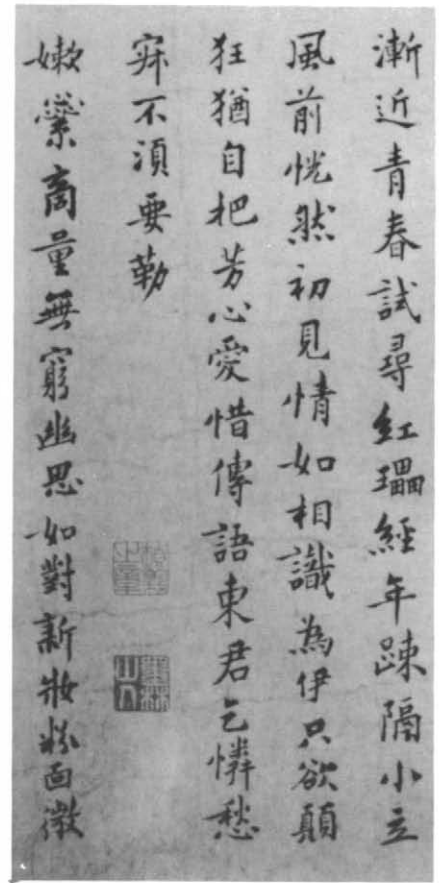 漸近青春試尋紅瓃經年踈隔小立
風前恍然初見情如相識為伊只欲顛
狂猶自把芳心愛惜傳語東君乞憐愁
寂不須要勒
嫩蘂商量無窮幽思如對新妝粉面微